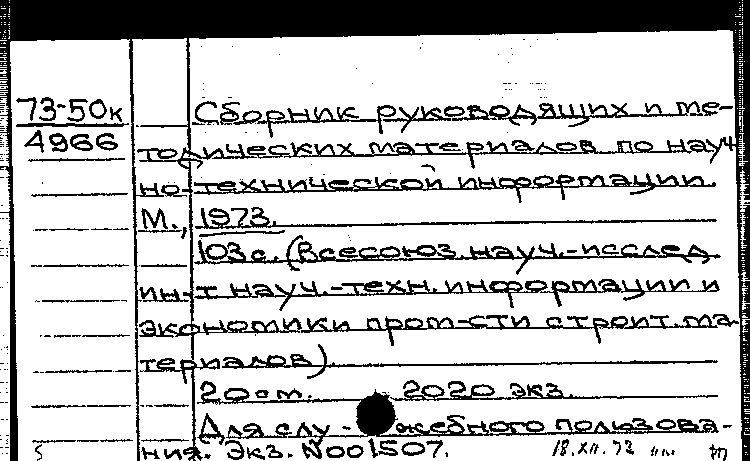 73-50к
4966
Сборник руководящих и ме-
тодических материалов по науч
но-технической информации.
М., 1973.
103с. (Всесоюз. науч.-исслед
ин-т науч.-техн. информации и
экономики пром-сти строит. ма-
териалов)
20см. 2020 экз.
Для слу-жебного пользова-
ния. Экз. №001507.
18.XII.73